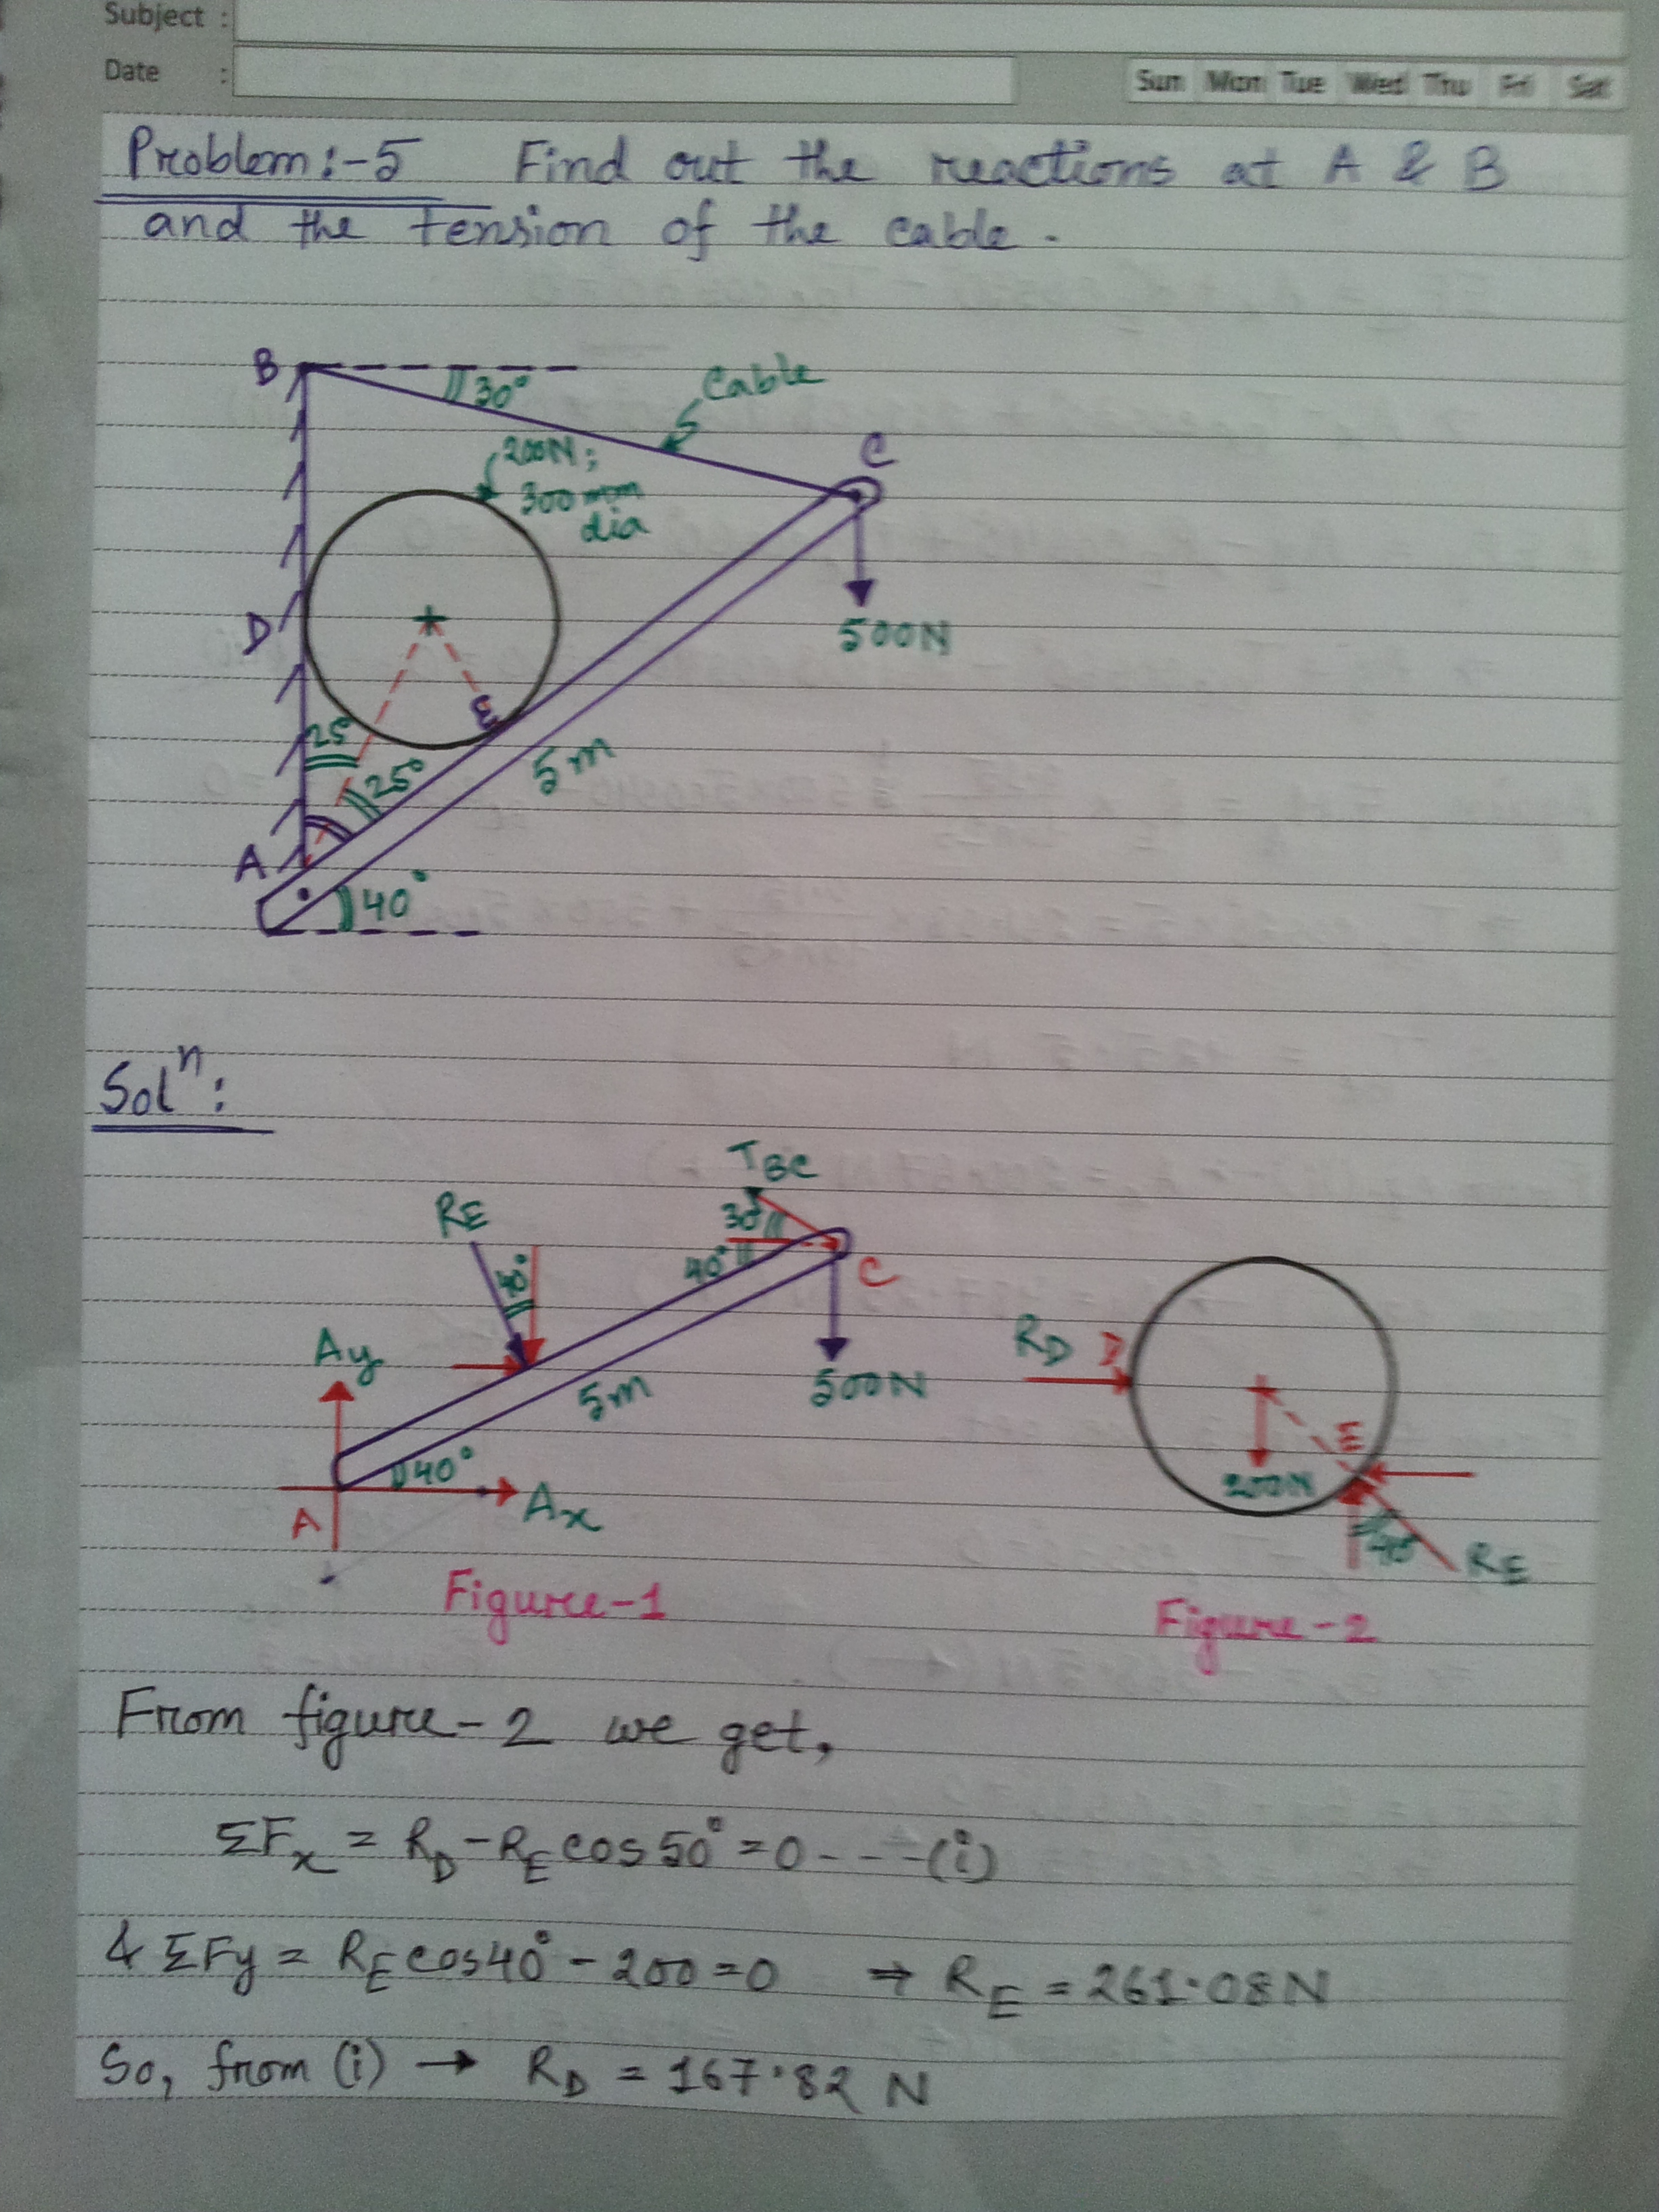 Subject :
Date :
Sun Mon Tue Wed Thu Fri Sat
Problem:-5 Find out the reactions at A & B
and the tension of the cable.
B
30°
Cable
200N;
300mm
dia
C
500N
D
E
25°
25°
5m
A
40°
Solⁿ:
T_BC
30°
40°
C
R_E
40°
A_y
500N
5m
40°
A_x
A
Figure-1
R_D D
E
200N
40°
R_E
Figure-2
From figure-2 we get,
ΣF_x = R_D - R_E cos50° = 0 - - - -(i)
& ΣFy = R_E cos40° - 200 = 0 ⇒ R_E = 261.08N
So, from (i) → R_D = 167.82 N